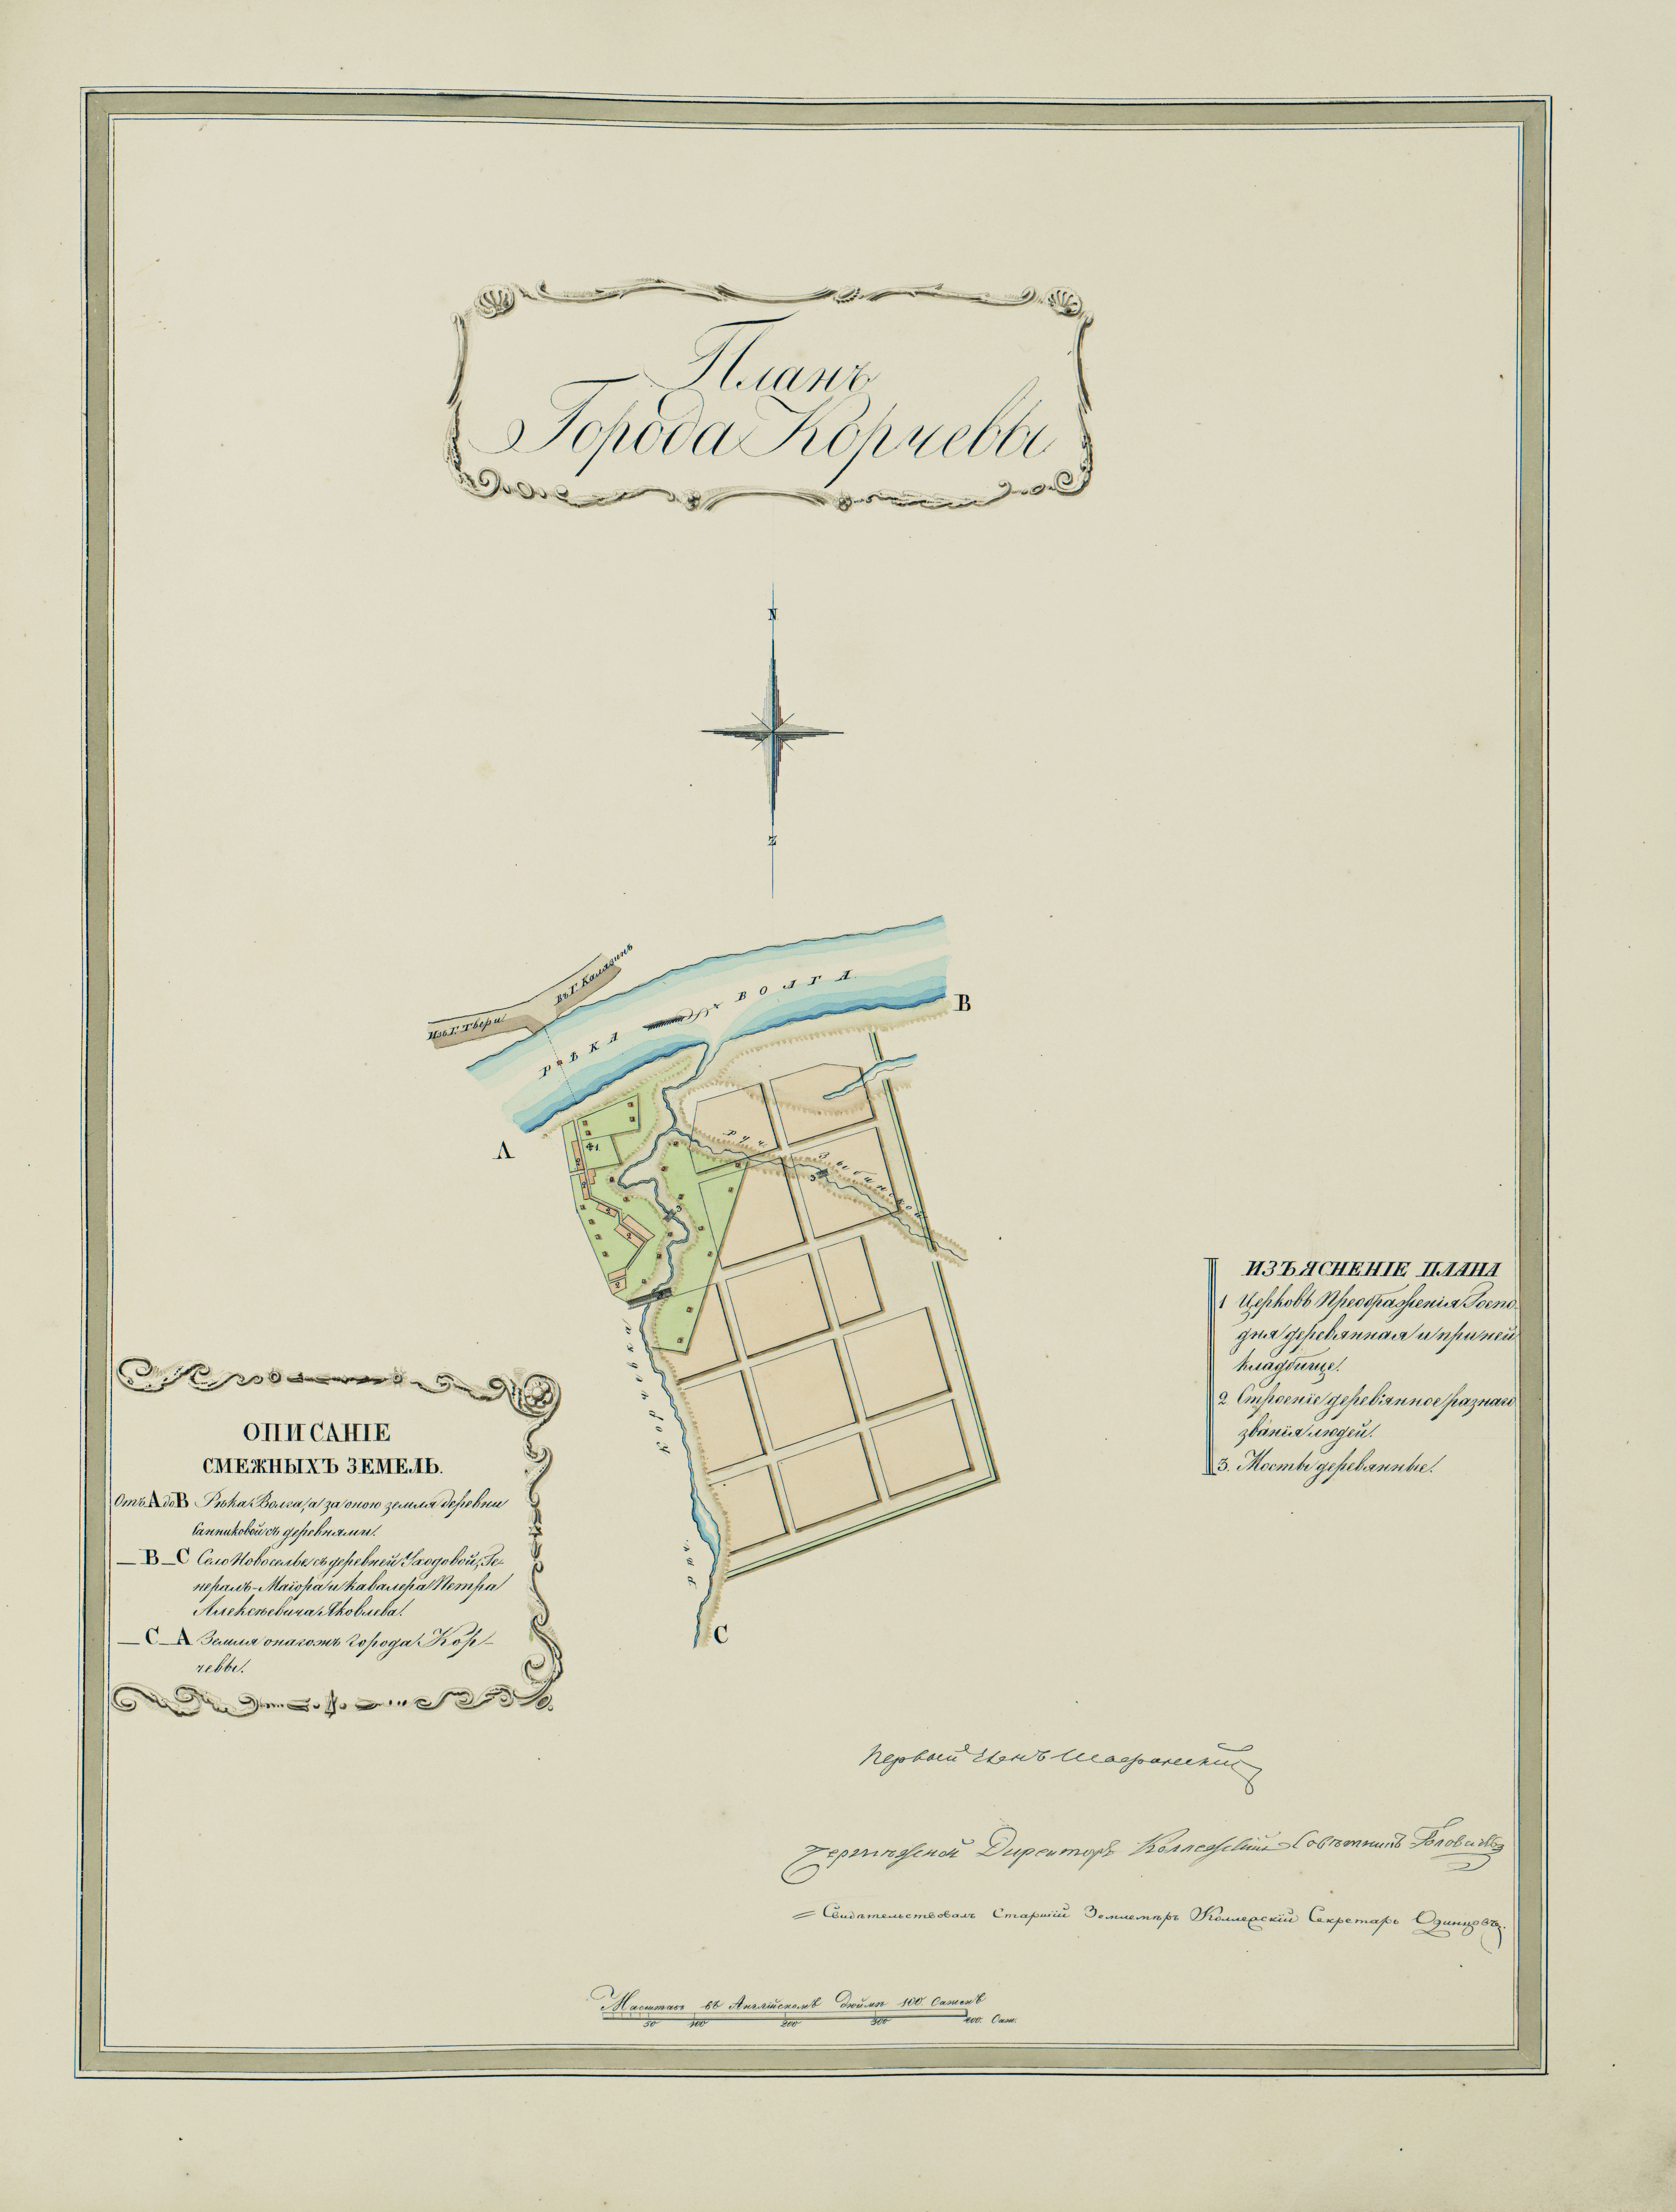 Планъ
Города Корчевы
N
Z
Изъ Г. Твери
Въ Г. Калязинъ
РѢКА ВОЛГА
A
B
C
руч. Зыбинской
рѣч. Корчевка
ОПИСАНІЕ
СМЕЖНЫХЪ ЗЕМЕЛЬ.
Отъ A до B Рѣка Волга, а за оною земля деревни
Санниковой съ деревнями.
— B — C Село Новоселье съ деревней Уходовой, Ге-
нералъ-Маіора и Кавалера Петра
Алексѣевича Яковлева.
— C — A Земля онагожъ города Кор-
чевы.
ИЗЪЯСНЕНІЕ ПЛАНА
1 Церковь Преображенія Госпо-
дня деревянная и при ней
кладбище.
2 Строеніе деревянное разнаго
званія людей.
3. Мосты деревянные.
Первый Членъ
Чертежной Директоръ Коллежскій Совѣтникъ
Свидѣтельствовалъ Старшій Землемѣръ Коллежскій Секретарь Одинцовъ.
Масштабъ въ Англійскомъ дюймѣ 100. Саженъ
50 100 200 300 400. Саж.